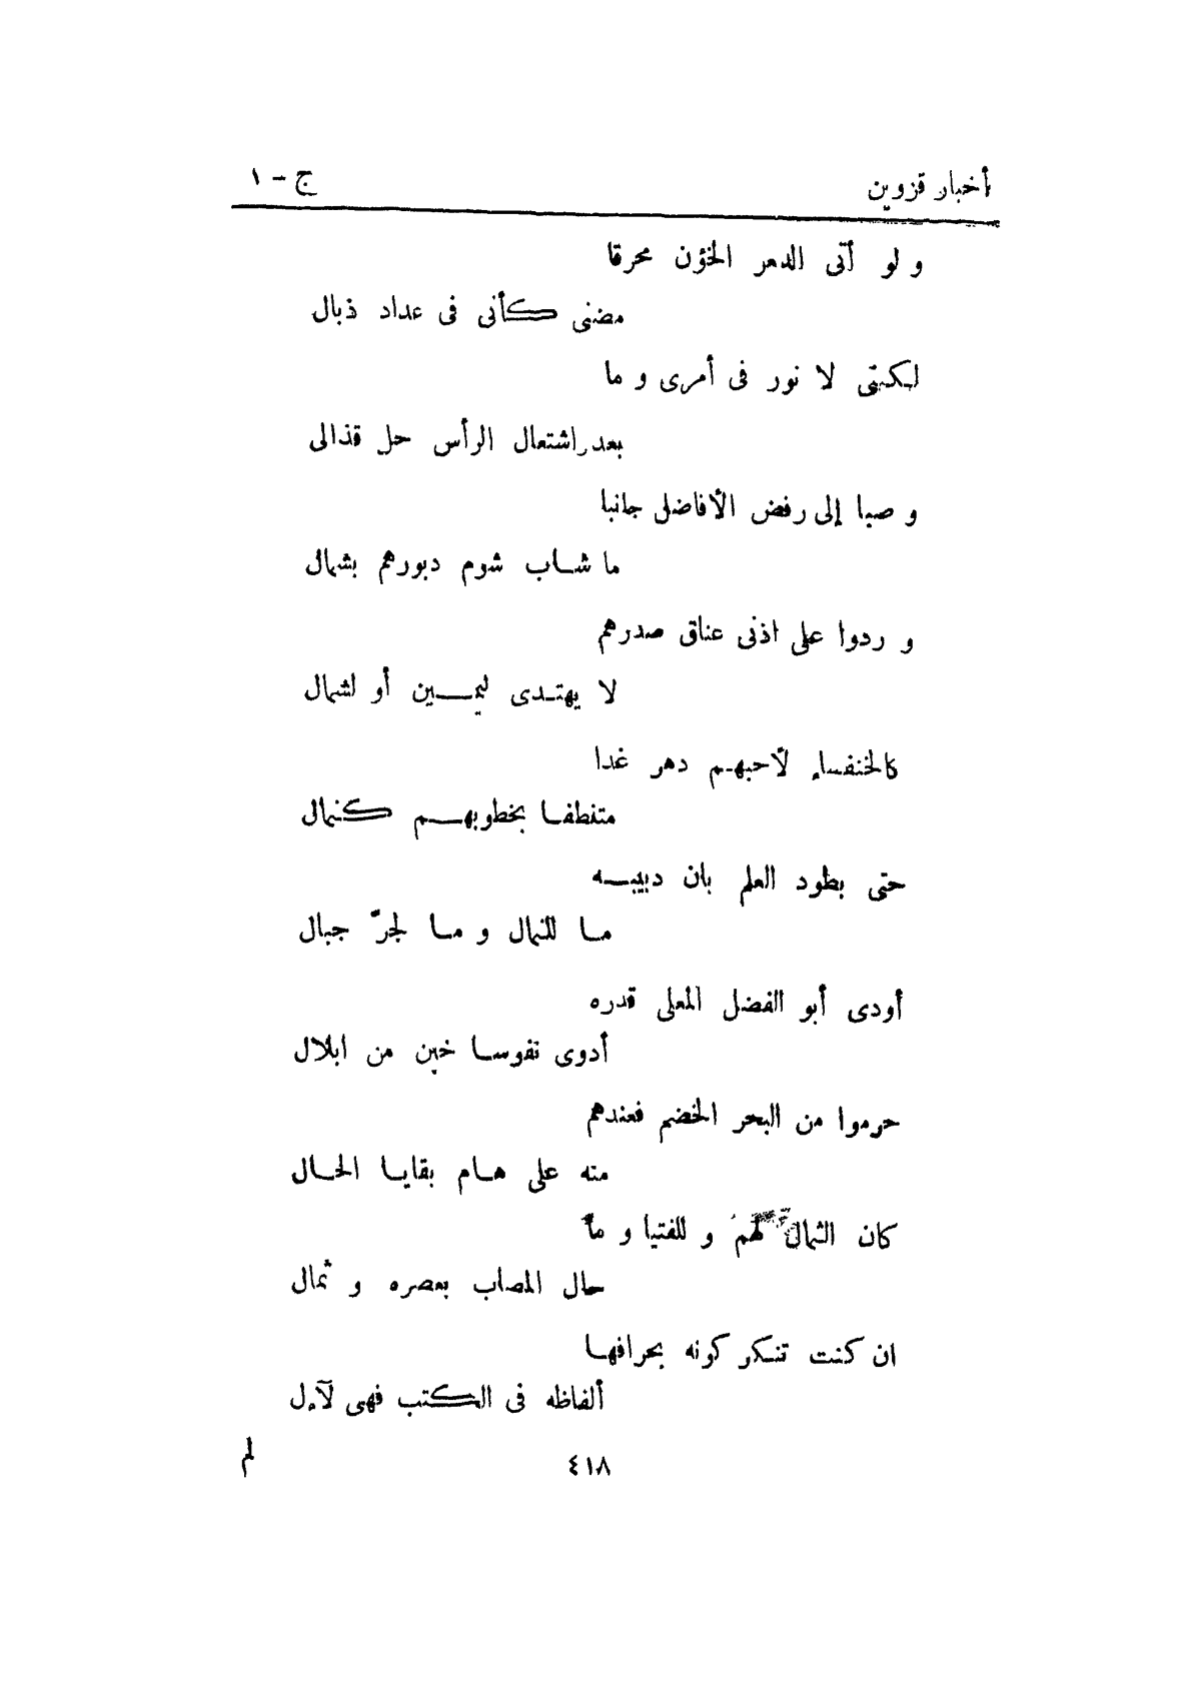 أخبار قزوين ج - ١
و لو أتى الدهر الخؤن محرقا
مضنى كأنى فى عداد ذبال
لكننى لا نور فى أمرى و ما
بعد اشتعال الرأس حل قذالى
و صبا إلى رفض الأفاضل جانبا
ما شاب شوم دبورهم بشمال
و ردوا على اذنى عناق صدرهم
لا يهتدى ليمين أو لشمال
كالخنفساء لأحبهم دهر غدا
متفطفا بخطوبهم كنمال
حتى بطود العلم بان دبيبه
ما للنمال و ما لجرّ جبال
أودى أبو الفضل المعلى قدره
أدوى نفوسا خبن من ابلال
حرموا من البحر الخضم فعندهم
منه على هام بقايا الحال
كان الثمال لهم و للفتيا و ما
حال المصاب بعصره و ثمال
ان كنت تنكر كونه بحرافها
ألفاظه فى الكتب فهى لآءل
٤١٨ لم